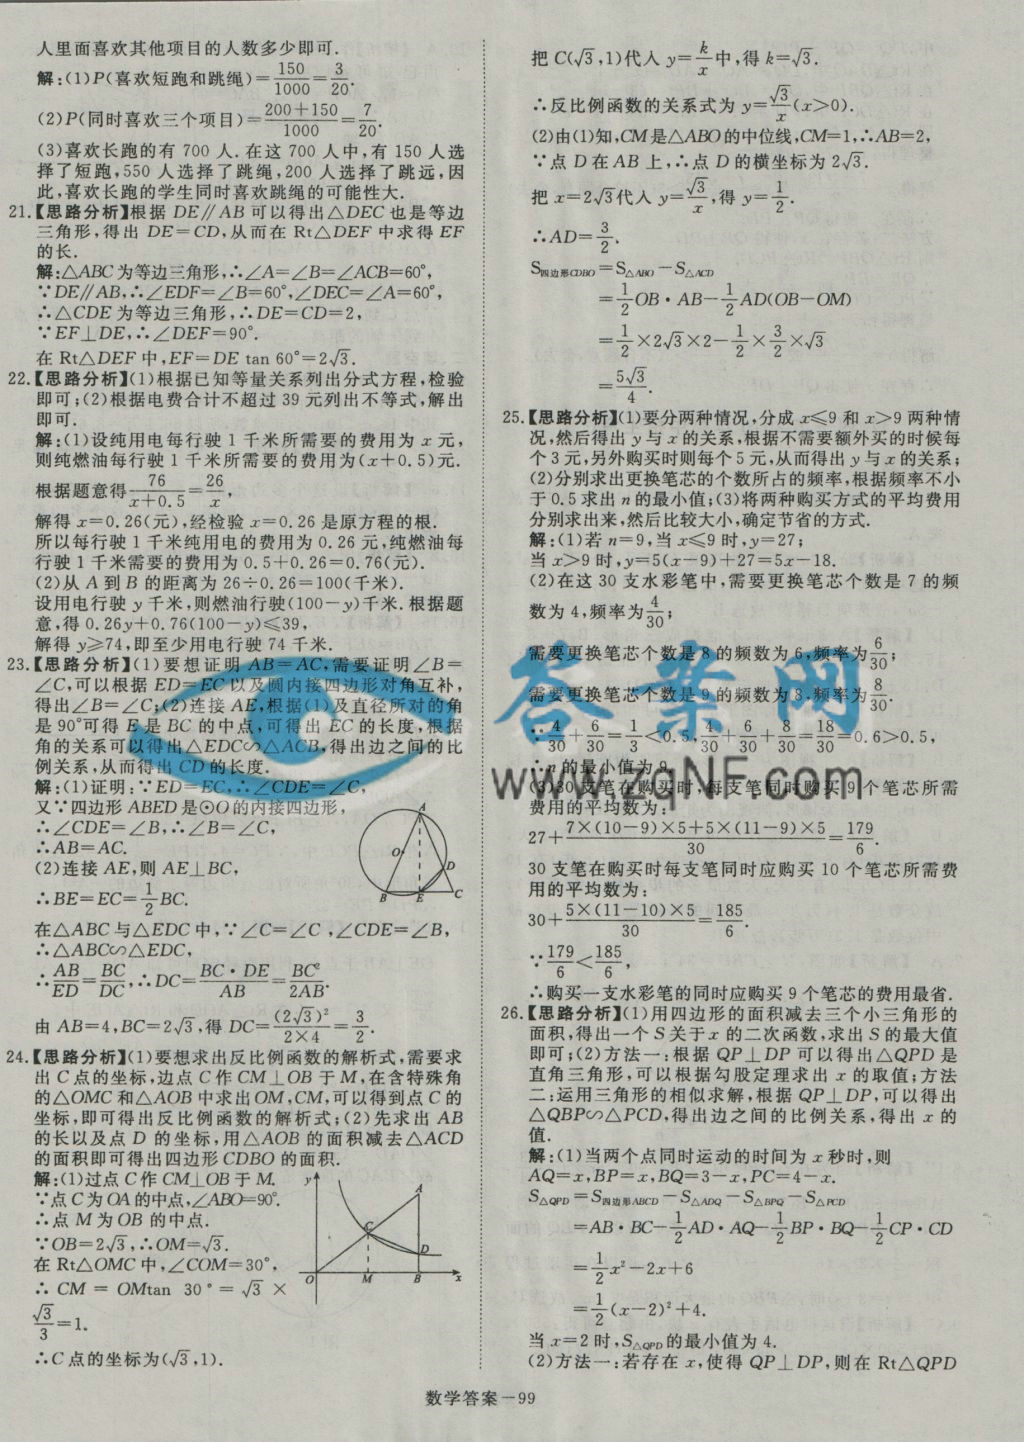 人里面喜欢其他项目的人数多少即可.
解:(1)P(喜欢短跑和跳绳)=150/1000=3/20.
(2)P(同时喜欢三个项目)=(200+150)/1000=7/20.
(3)喜欢长跑的有 700 人.在这 700 人中,有 150 人选
择了短跑,550 人选择了跳绳,200 人选择了跳远,因
此,喜欢长跑的学生同时喜欢跳绳的可能性大.
21.【思路分析】根据 DE∥AB 可以得出△DEC 也是等边
三角形,得出 DE=CD,从而在 Rt△DEF 中求得 EF
的长.
解:△ABC 为等边三角形,∴∠A=∠B=∠ACB=60°,
∵DE∥AB,∴∠EDF=∠B=60°,∠DEC=∠A=60°,
∴△CDE 为等边三角形,∴DE=CD=2,
∵EF⊥DE,∴∠DEF=90°.
在 Rt△DEF 中,EF=DE tan 60°=2√3.
22.【思路分析】(1)根据已知等量关系列出分式方程,检验
即可;(2)根据电费合计不超过 39 元列出不等式,解出
即可.
解:(1)设纯用电每行驶 1 千米所需要的费用为 x 元,
则纯燃油每行驶 1 千米所需要的费用为(x+0.5)元.
根据题意得76/(x+0.5)=26/x,
解得 x=0.26(元),经检验 x=0.26 是原方程的根.
所以每行驶 1 千米纯用电的费用为 0.26 元,纯燃油每
行驶 1 千米需要的费用为 0.5+0.26=0.76(元).
(2)从 A 到 B 的距离为 26÷0.26=100(千米).
设用电行驶 y 千米,则燃油行驶(100-y)千米.根据题
意,得 0.26y+0.76(100-y)≤39,
解得 y≥74,即至少用电行驶 74 千米.
23.【思路分析】(1)要想证明 AB=AC,需要证明∠B=
∠C,可以根据 ED=EC 以及圆内接四边形对角互补,
得出∠B=∠C;(2)连接 AE,根据(1)及直径所对的角
是 90°可得 E 是 BC 的中点,可得出 EC 的长度,根据
角的关系可以得出△EDC∽△ACB,得出边之间的比
例关系,从而得出 CD 的长度.
解:(1)证明:∵ED=EC,∴∠CDE=∠C,
又∵四边形 ABED 是⊙O 的内接四边形,
∴∠CDE=∠B,∴∠B=∠C,
∴AB=AC.
(2)连接 AE,则 AE⊥BC,
∴BE=EC=1/2 BC.
在△ABC 与△EDC 中,∵∠C=∠C,∠CDE=∠B,
∴△ABC∽△EDC,
∴AB/ED=BC/DC,∴DC=BC·DE/AB=BC²/2AB.
由 AB=4,BC=2√3,得 DC=(2√3)²/(2×4)=3/2.
A
O
D
B
E
C
24.【思路分析】(1)要想求出反比例函数的解析式,需要求
出 C 点的坐标,边点 C 作 CM⊥OB 于 M,在含特殊角
的△OMC 和△AOB 中求出 OM,CM,可以得到点 C 的
坐标,即可得出反比例函数的解析式;(2)先求出 AB
的长以及点 D 的坐标,用△AOB 的面积减去△ACD
的面积即可得出四边形 CDBO 的面积.
解:(1)过点 C 作 CM⊥OB 于 M.
∵点 C 为 OA 的中点,∠ABO=90°.
∴点 M 为 OB 的中点.
∵OB=2√3,∴OM=√3.
在 Rt△OMC 中,∠COM=30°,
∴ CM = OMtan 30° = √3 ×
√3/3=1.
∴C 点的坐标为(√3,1).
y
A
C
D
O
M
B
x
把 C(√3,1)代入 y=k/x中,得 k=√3.
∴反比例函数的关系式为 y=√3/x(x>0).
(2)由(1)知,CM 是△ABO 的中位线,CM=1,∴AB=2,
∵点 D 在 AB 上,∴点 D 的横坐标为 2√3.
把 x=2√3代入 y=√3/x,得 y=1/2.
∴AD=3/2,
S四边形CDBO=S△ABO-S△ACD
=1/2 OB·AB-1/2 AD(OB-OM)
=1/2×2√3×2-1/2×3/2×√3
=5√3/4.
25.【思路分析】(1)要分两种情况,分成 x≤9 和 x>9 两种情
况,然后得出 y 与 x 的关系,根据不需要额外买的时候每
个 3 元,另外购买时则每个 5 元,从而得出 y 与 x 的关系;
(2)分别求出更换笔芯的个数所占的频率,根据频率不小
于 0.5 求出 n 的最小值;(3)将两种购买方式的平均费用
分别求出来,然后比较大小,确定节省的方式.
解:(1)若 n=9,当 x≤9 时,y=27;
当 x>9 时,y=5(x-9)+27=5x-18.
(2)在这 30 支水彩笔中,需要更换笔芯个数是 7 的频
数为 4,频率为4/30;
需要更换笔芯个数是 8 的频数为 6,频率为6/30;
需要更换笔芯个数是 9 的频数为 8,频率为8/30.
∵4/30+6/30=1/3<0.5,4/30+6/30+8/30=18/30=0.6>0.5,
∴n 的最小值为 9.
(3)30 支笔在购买时,每支笔同时购买 9 个笔芯所需
费用的平均数为:
27+(7×(10-9)×5+5×(11-9)×5)/30=179/6.
30 支笔在购买时每支笔同时应购买 10 个笔芯所需费
用的平均数为:
30+(5×(11-10)×5)/30=185/6.
∵179/6<185/6,
∴购买一支水彩笔的同时应购买 9 个笔芯的费用最省.
26.【思路分析】(1)用四边形的面积减去三个小三角形的
面积,得出一个 S 关于 x 的二次函数,求出 S 的最大值
即可;(2)方法一:根据 QP⊥DP 可以得出△QPD 是
直角三角形,可以根据勾股定理求出 x 的取值;方法
二:运用三角形的相似求解,根据 QP⊥DP,可以得出
△QBP∽△PCD,得出边之间的比例关系,得出 x 的
值.
解:(1)当两个点同时运动的时间为 x 秒时,则
AQ=x,BP=x,BQ=3-x,PC=4-x.
S△QPD=S四边形ABCD-S△ADQ-S△BPQ-S△PCD
=AB·BC-1/2 AD·AQ-1/2 BP·BQ-1/2 CP·CD
=1/2 x²-2x+6
=1/2(x-2)²+4.
当 x=2 时,S△QPD的最小值为 4.
(2)方法一:若存在 x,使得 QP⊥DP,则在 Rt△QPD
答案网
www.zqNF.com
数学答案—99